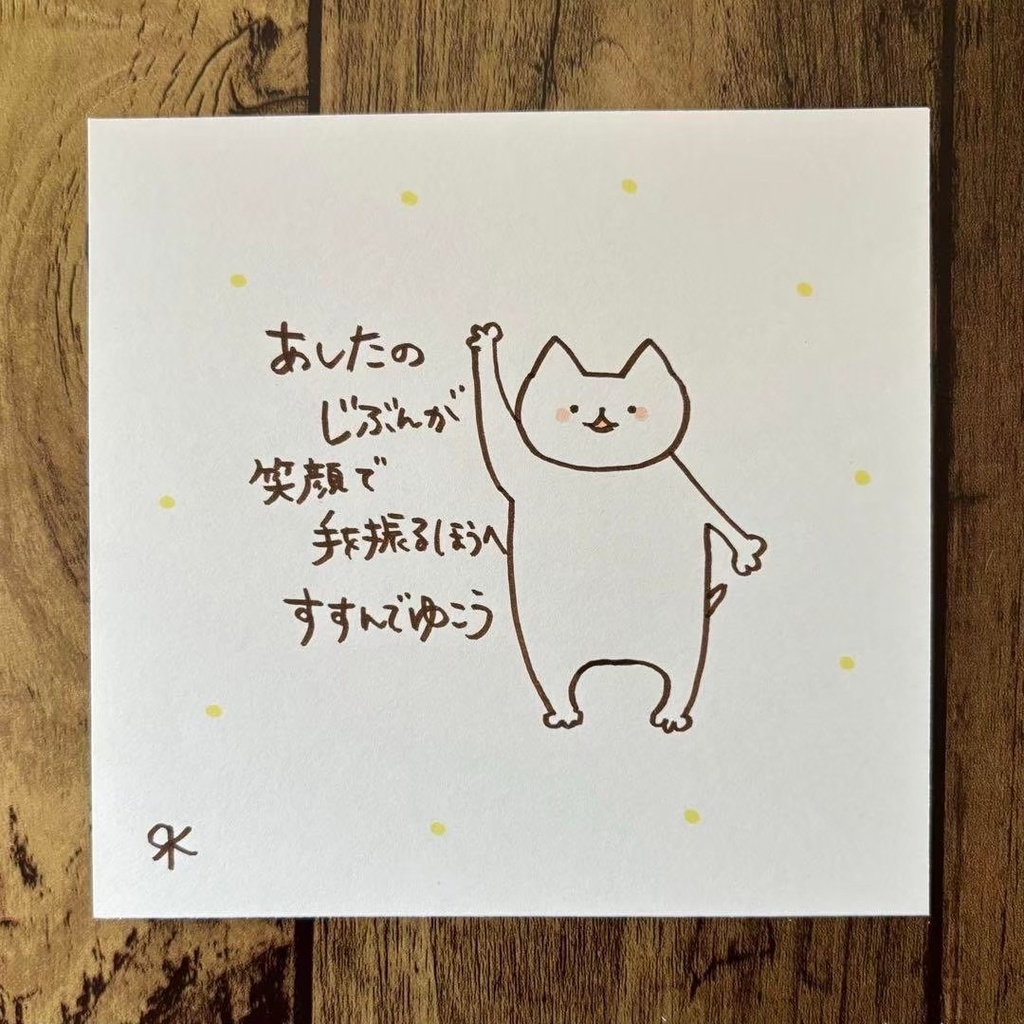 あしたの
じぶんが
笑顔で
手を振るほうへ
すすんでゆこう